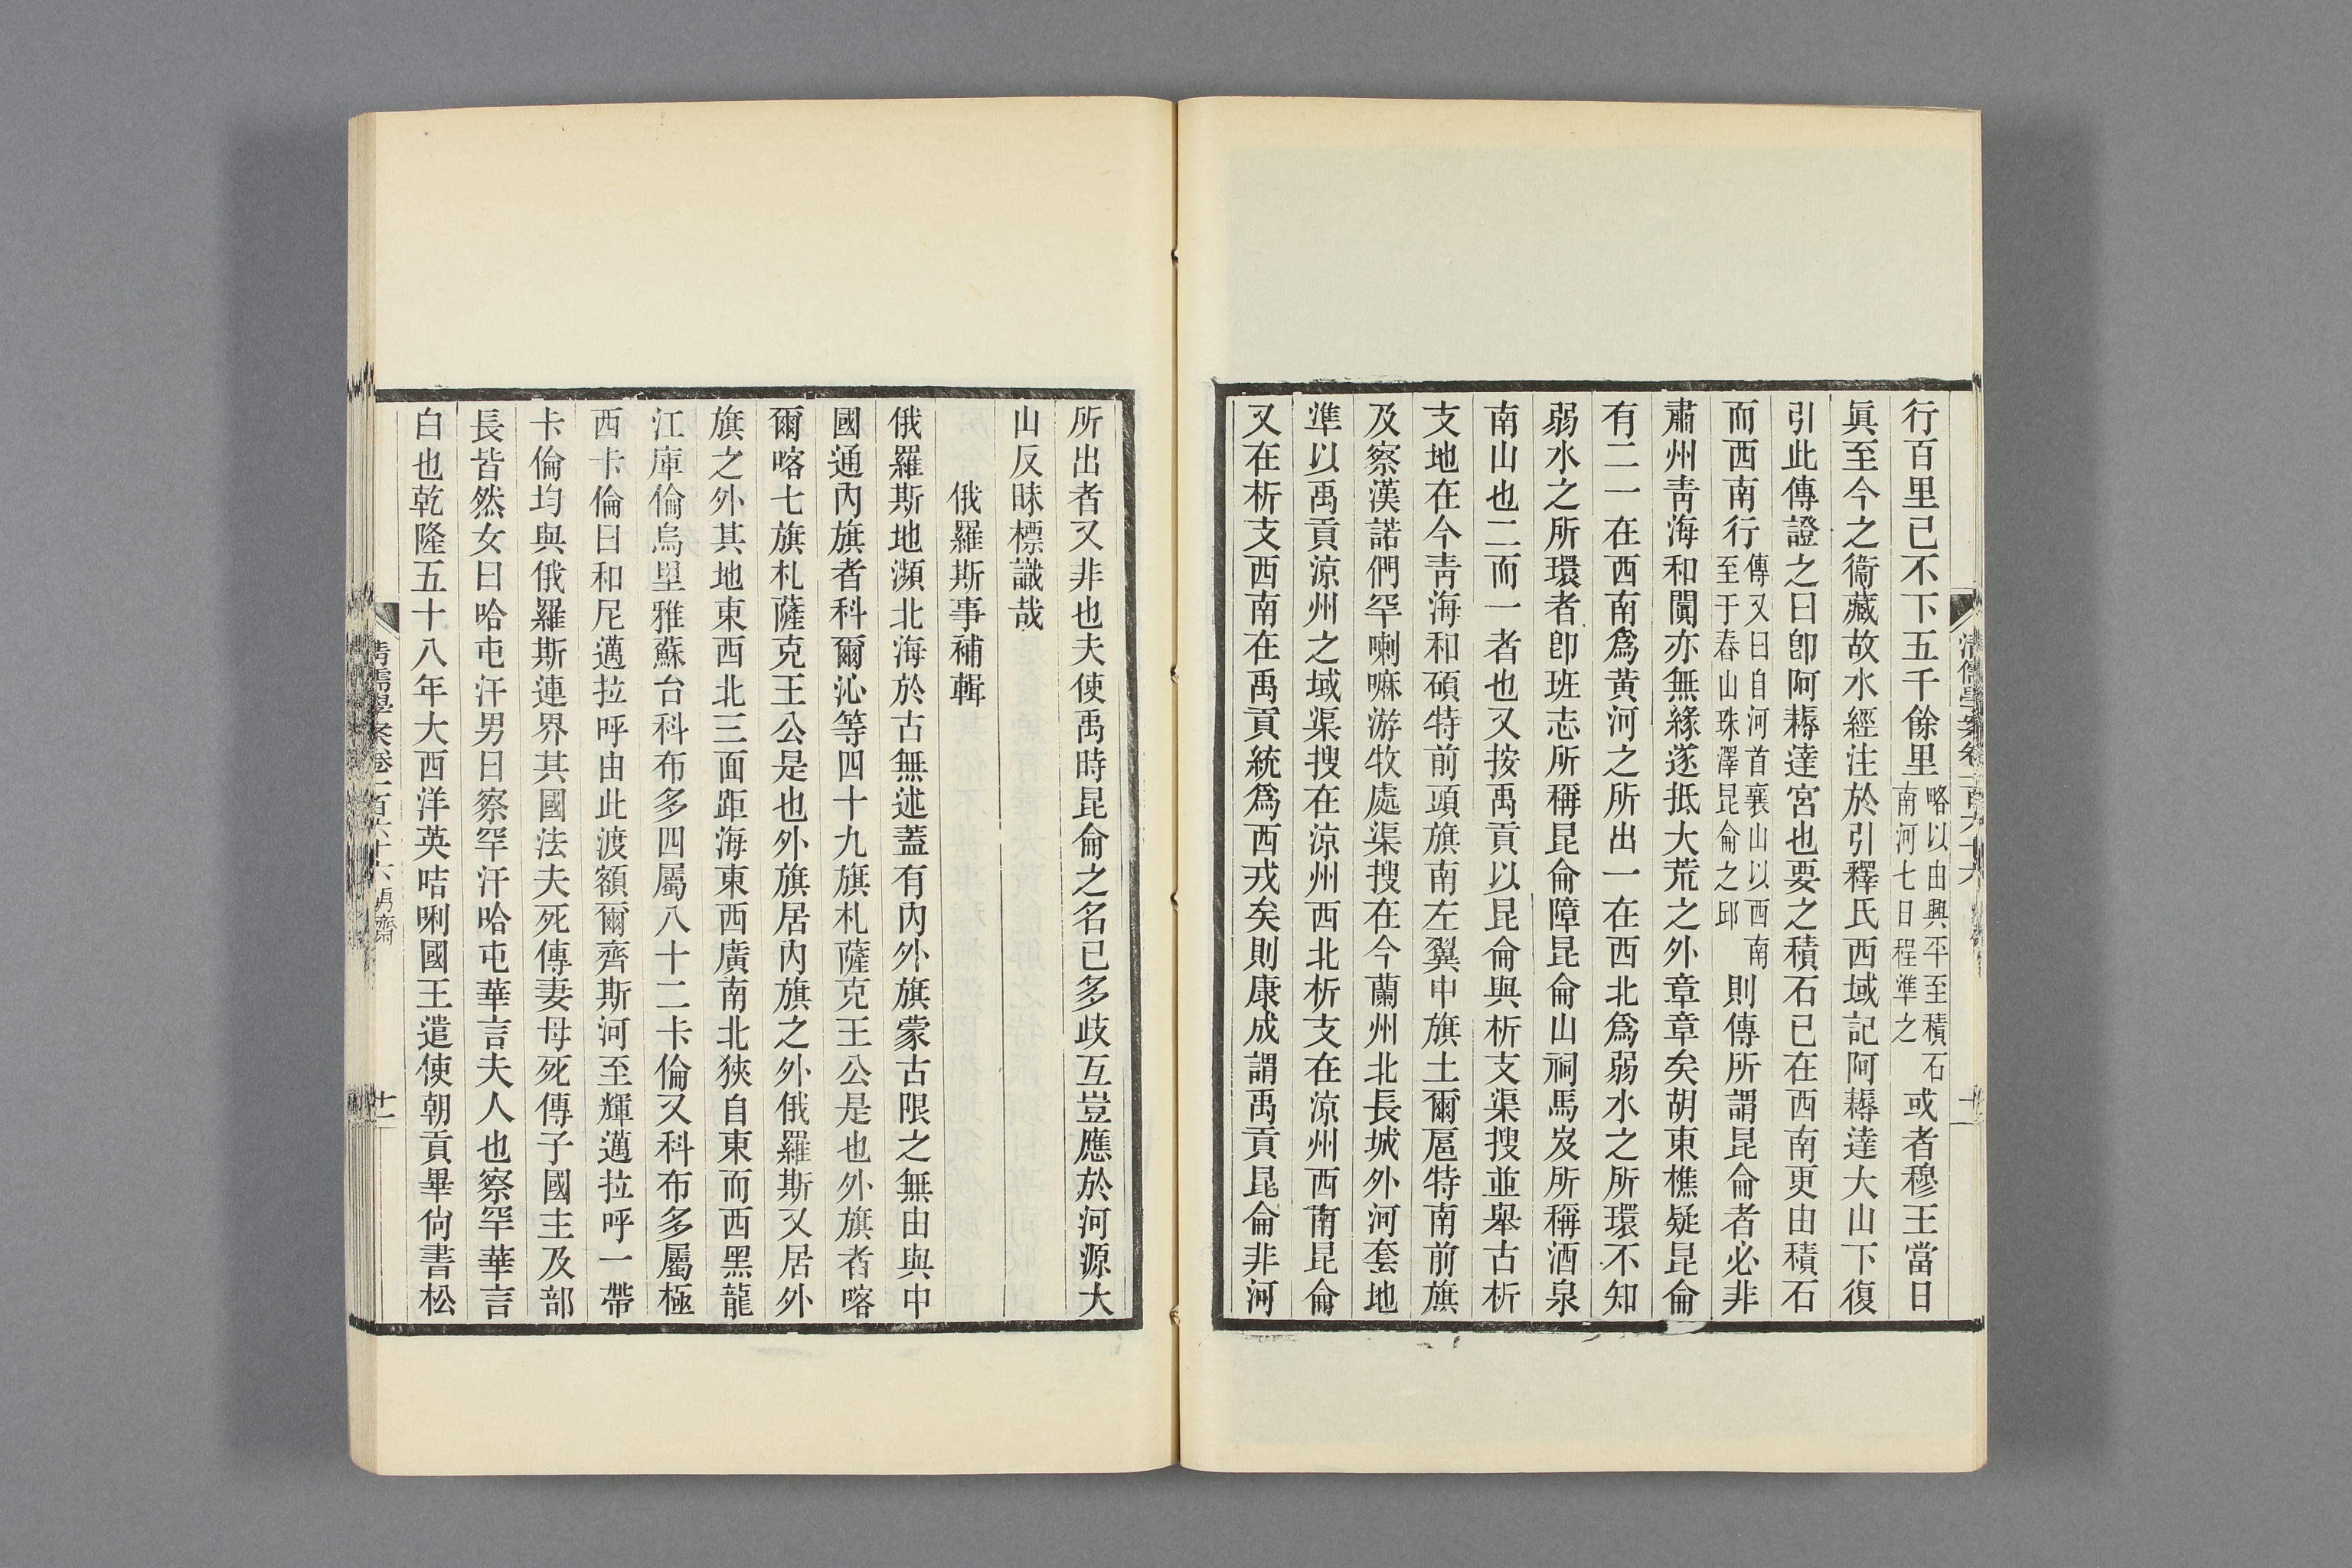 行百里已不下五千餘里略以由興平至積石南河七日程準之或者穆王當日
眞至今之衞藏故水經注於引釋氏西域記阿耨達大山下復
引此傳證之曰卽阿耨達宮也要之積石已在西南更由積石
而西南行傳又曰自河首襄山以西南至于舂山珠澤昆侖之邱則傳所謂昆侖者必非
肅州靑海和闐亦無緣遂抵大荒之外章章矣胡東樵疑昆侖
有二一在西南爲黃河之所出一在西北爲弱水之所環不知
弱水之所環者卽班志所稱昆侖障昆侖山祠馬岌所稱酒泉
南山也二而一者也又按禹貢以昆侖與析支渠搜並舉古析
支地在今靑海和碩特前頭旗南左翼中旗土爾扈特南前旗
及察漢諾們罕喇嘛游牧處渠搜在今蘭州北長城外河套地
準以禹貢涼州之域渠搜在涼州西北析支在涼州西南昆侖
又在析支西南在禹貢統爲西戎矣則康成謂禹貢昆侖非河
所出者又非也夫使禹時昆侖之名已多歧互豈應於河源大
山反昧標識哉
俄羅斯事補輯
俄羅斯地瀕北海於古無述蓋有內外旗蒙古限之無由與中
國通內旗者科爾沁等四十九旗札薩克王公是也外旗者喀
爾喀七旗札薩克王公是也外旗居內旗之外俄羅斯又居外
旗之外其地東西北三面距海東西廣南北狹自東而西黑龍
江庫倫烏里雅蘇台科布多四屬八十二卡倫又科布多屬極
西卡倫曰和尼邁拉呼由此渡額爾齊斯河至輝邁拉呼一帶
卡倫均與俄羅斯連界其國法夫死傳妻母死傳子國主及部
長皆然女曰哈屯汗男曰察罕汗哈屯華言夫人也察罕華言
白也乾隆五十八年大西洋英咭唎國王遣使朝貢畢尙書松
清儒學案卷一百六十六
十一